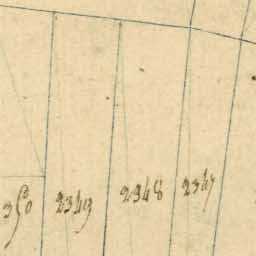 2350 2349 2348 2347